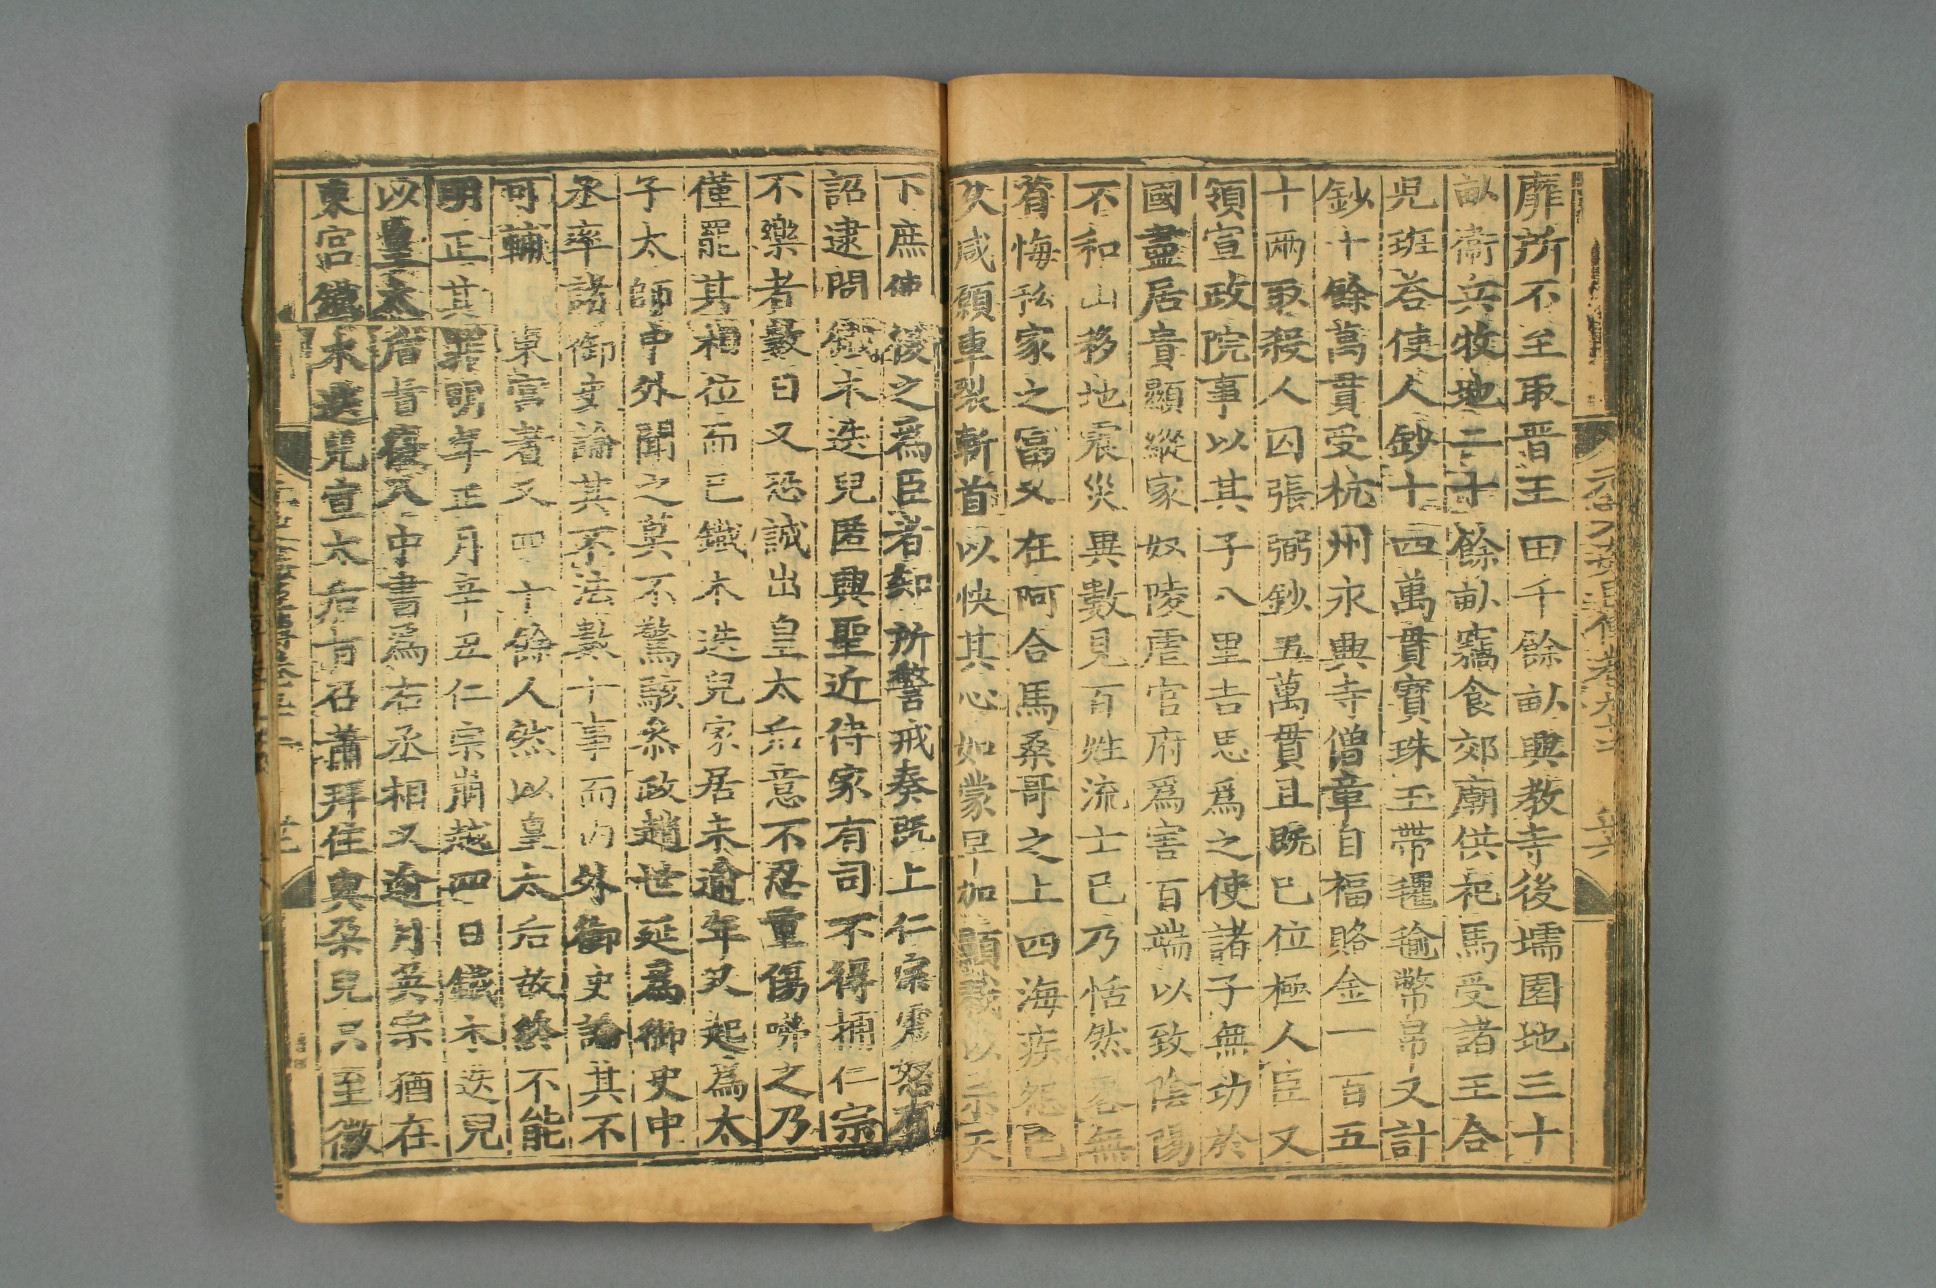 靡所不至取晉王田千餘畆興教寺後壖園地三十
畆衞兵牧地二十餘畆竊食郊廟供祀馬受諸王合
児班荅使人鈔十四萬貫寶珠玉帶氍毺幣帛又計
鈔十餘萬貫受杭州永興寺僧章自福賂金一百五
十兩取殺人囚張弼鈔五萬貫且既已位極人臣又
領宣政院事以其子八里吉思為之使諸子無功於
國盡居貴顯縱家奴陵虐官府爲害百端以致陰陽
不和山移地震災異數見百姓流亡已乃恬然畧無
省悔私家之富又在阿合馬桑哥之上四海疾怨已
久咸願車裂斬首以快其心如蒙早加顯戮以示天
下庶使後之爲臣者知所警戒奏既上仁宗震怒有
詔逮問鐵木迭兒匿興聖近侍家有司不得捕仁宗
不樂者數日又恐誠出皇太后意不忍重傷咈之乃
僅罷其相位而已鐵木迭兒家居未逾年又起爲太
子太師中外聞之莫不驚駭叅政趙世延爲御史中
丞率諸御史論其不法數十事而内外御史論其不
可輔東宮者又四十餘人然以皇太后故終不能
明正其罪明年正月辛丑仁宗崩越四日鐵木迭兒
以皇太后旨復入中書爲右丞相又逾月英宗猶在
東宮鐵木迭兒宣太后旨召蕭拜住與朶兒只至徽